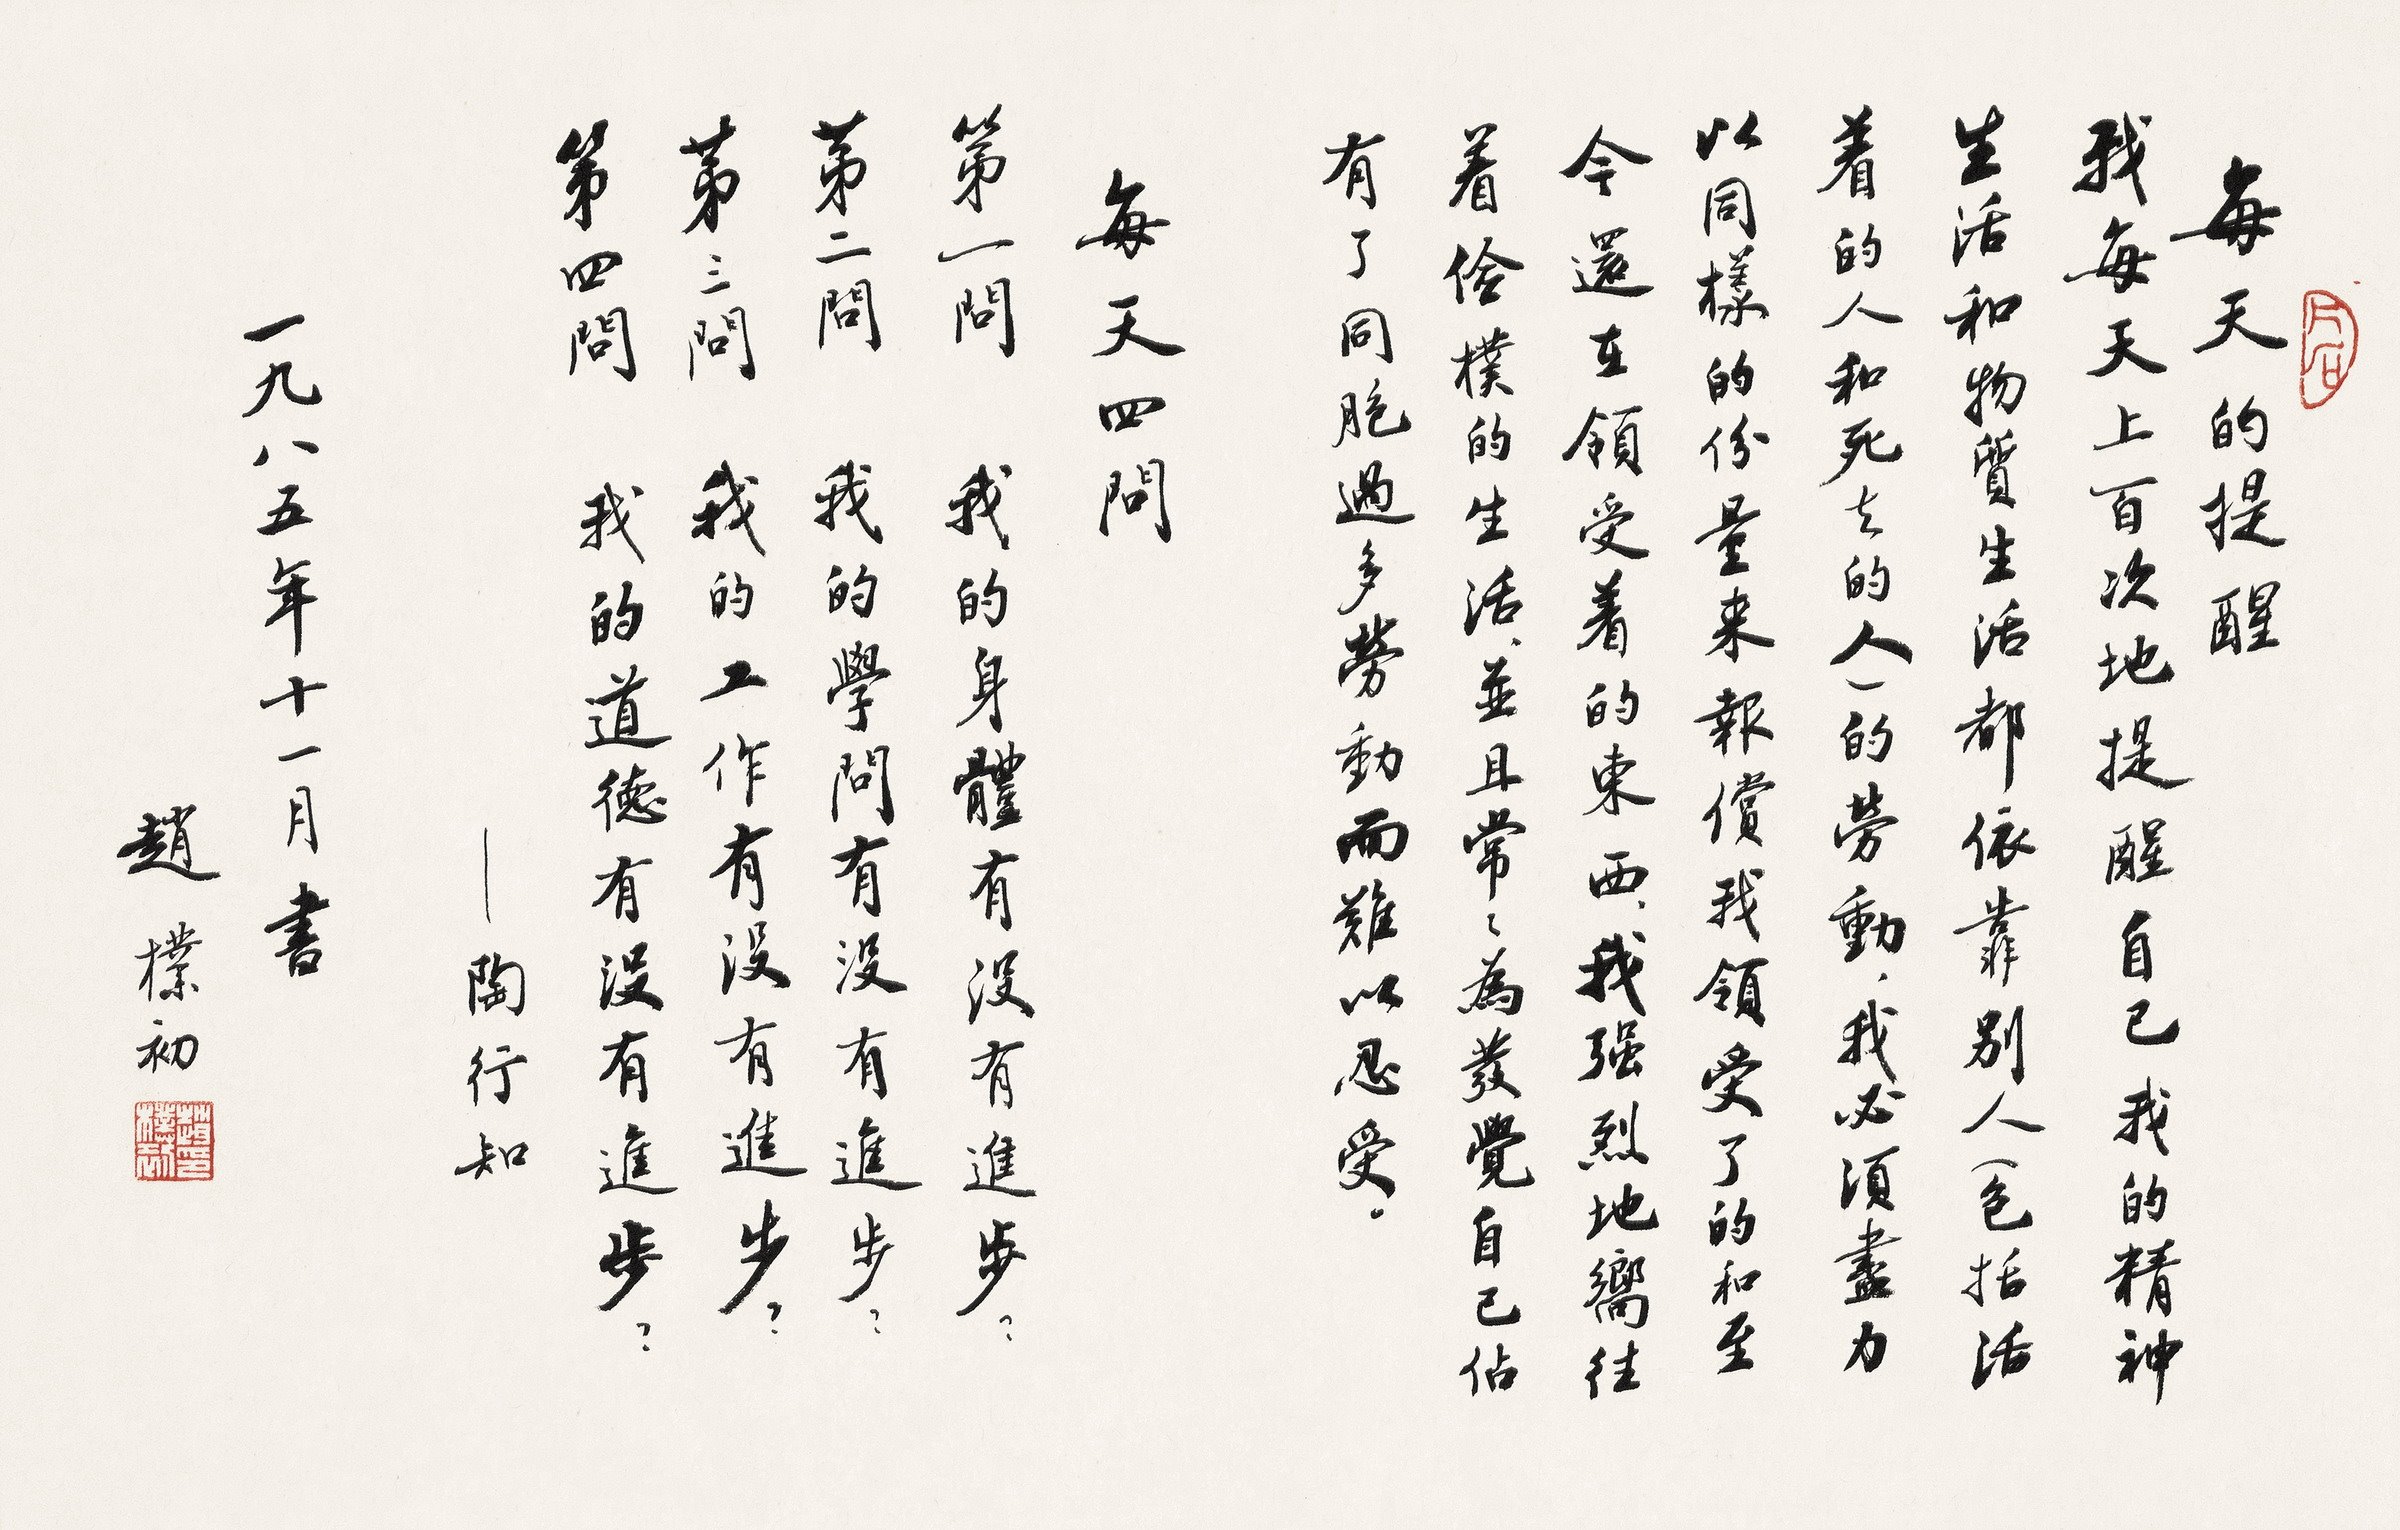 每天的提醒
我每天上百次地提醒自己我的精神
生活和物質生活都依靠别人(包括活
着的人和死去的人)的勞動、我必須盡力
以同樣的份量来報償我領受了的和至
今還在領受着的東西、我强烈地嚮往
着儉樸的生活、並且常々為發覺自己佔
有了同胞過多勞動而難以忍受.
每天四問
第一問 我的身體有没有進步?
第二問 我的學問有没有進步?
第三問 我的工作有没有進步?
第四問 我的道德有没有進步?
——陶行知
一九八五年十一月書
趙樸初
趙樸初印